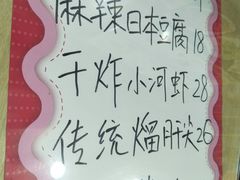 麻辣日本豆腐18
干炸小河虾28
传统熘肝尖26